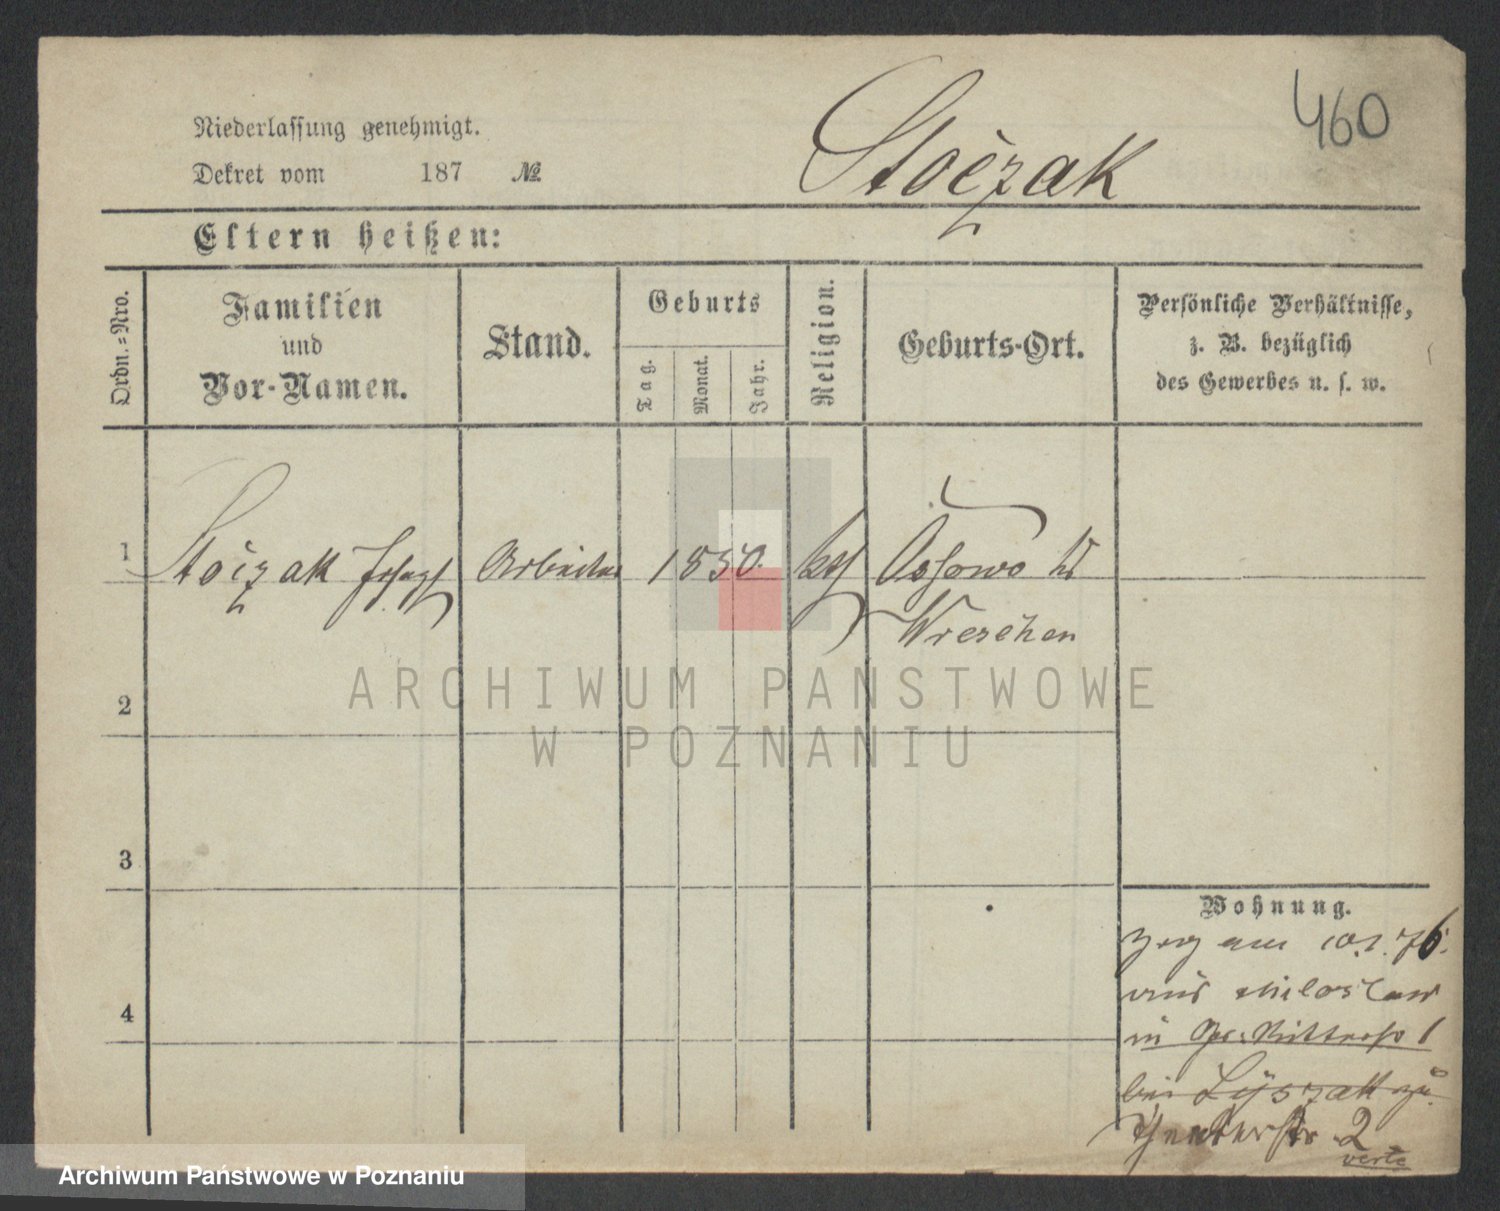 460
Niederlassung genehmigt.
Dekret vom 187 №
Stoczak
Eltern heißen:
Ordn.-Nro.
Familien
und
Vor-Namen.
Stand.
Geburts
Tag.
Monat.
Jahr.
Religion.
Geburts-Ort.
Persönliche Verhältnisse,
z. B. bezüglich
des Gewerbes u. s. w.
1 Stoczak Joseph Arbeiter 1850. kth Ossowo
Wreschen
2
3
4
Wohnung.
zog am 10.1.76.
aus Miloslaw
in Gr. Ritterstr 1
bei Lyszak
Theaterstr 2
verte
ARCHIWUM PAŃSTWOWE
W POZNANIU
Archiwum Państwowe w Poznaniu